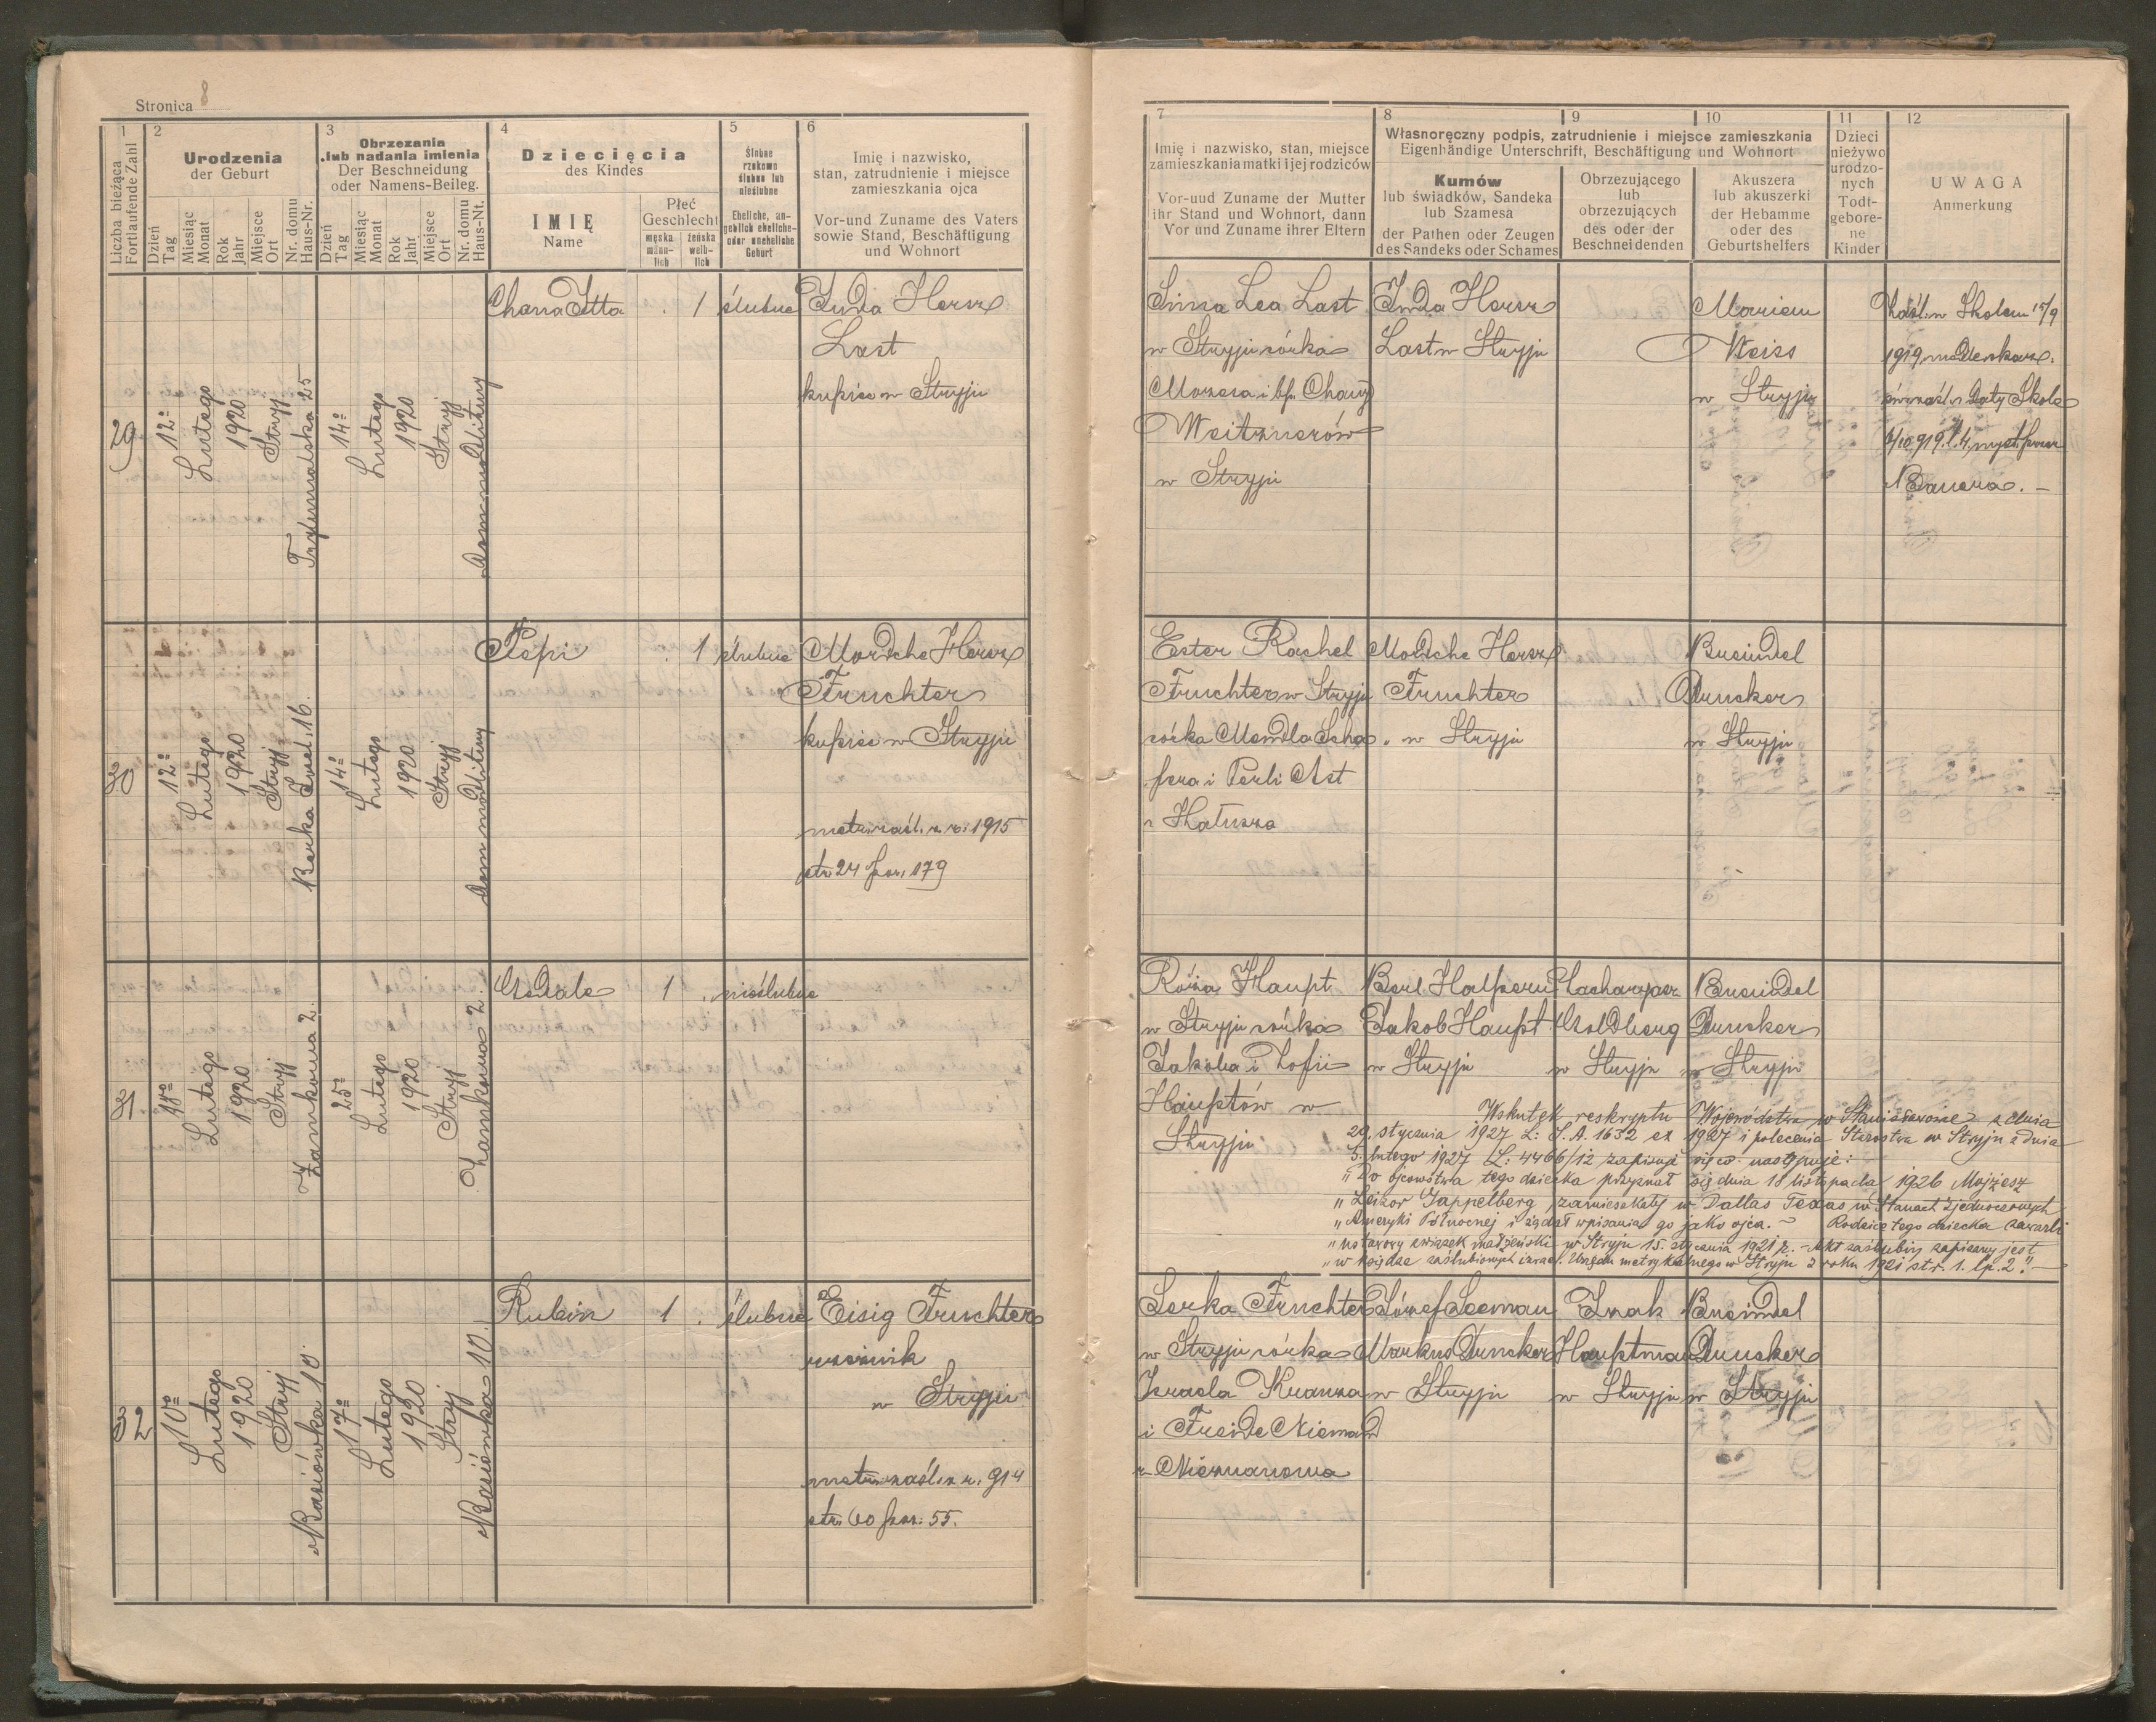 Stronica 8
1 2 3 4 5 6
Liczba bieżąca
Fortlaufende Zahl
Urodzenia
der Geburt
Dzień
Tag
Miesiąc
Monat
Rok
Jahr
Miejsce
Ort
Nr. domu
Haus-Nr.
Obrzezania
lub nadania imienia
Der Beschneidung
oder Namens-Beileg.
Dzień
Tag
Miesiąc
Monat
Rok
Jahr
Miejsce
Ort
Nr. domu
Haus-Nt.
Dziecięcia
des Kindes
IMIĘ
Name
Płeć
Geschlecht
męska
männ-
lich
żeńska
weib-
lich
Ślubne
rzekomo
ślubne lub
nieślubne
Eheliche, an-
geblich eheliche
oder uneheliche
Geburt
Imię i nazwisko,
stan, zatrudnienie i miejsce
zamieszkania ojca
Vor-und Zuname des Vaters
sowie Stand, Beschäftigung
und Wohnort
29
12º
Lutego
1920
Stryj
14º
Lutego
1920
Stryj
Dom modlitwy
Chana Itta
1
ślubne
Juda Hersz
Last
kupiec w Stryju
30
12º
Lutego
1920
Stryj
Berka Josel. 16.
14º
Lutego
1920
Stryj
Dom modlitwy
Pepi
1
ślubne
Mordche Hersz
Fruchter
kupiec w Stryju
metr. zaśl. z r. 1915
str 24 poz. 179
31
18º
Lutego
1920
Stryj
Zamkowa 2.
25º
Lutego
1920
Stryj
Zamkowa 2.
Gedale
1
nieślubne
32
10º
Lutego
1920
Stryj
17º
Lutego
1920
Stryj
Rubin
1
ślubne
Eisig Fruchter
w Stryju
metr. zaśl. z r. 914
str. 60 poz. 55.
7 8 9 10 11 12
Imię i nazwisko, stan, miejsce
zamieszkania matki i jej rodziców
Vor-und Zuname der Mutter
ihr Stand und Wohnort, dann
Vor und Zuname ihrer Eltern
Własnoręczny podpis, zatrudnienie i miejsce zamieszkania
Eigenhändige Unterschrift, Beschäftigung und Wohnort
Kumów
lub świadków, Sandeka
lub Szamesa
der Pathen oder Zeugen
des Sandeks oder Schames
Obrzezującego
lub
obrzezujących
des oder der
Beschneidenden
Akuszera
lub akuszerki
der Hebamme
oder des
Geburtshelfers
Dzieci
nieżywo
urodzo-
nych
Todt-
gebore-
ne
Kinder
UWAGA
Anmerkung
Lea Last
w Stryju córka
Mozesa i Chany
Weitznerów
w Stryju
Juda Hersz
Last w Stryju
Mariem
Weiss
w Stryju
Zaśl. w Skolem 15/9
1919
Ester Rachel
Fruchter w Stryju
córka Mendla Scha
fera i Perli Ast
z Kałusza
Mordche Hersz
Fruchter
w Stryju
Breindel
Drucker
w Stryju
Róża Haupt
w Stryju córka
Jakóba i Zofii
Hauptów w
Stryju
Berl Halpern
Jakob Haupt
w Stryju
Zacharyasz
Goldberg
w Stryju
Breindel
Drucker
w Stryju
Wskutek reskryptu Województwa w Stanisławowie z dnia
29. stycznia 1927 L: S.A. 1632 ex 1927 i polecenia Starostwa w Stryju z dnia
5. lutego 1927 L: 4466/12 zapisuje się co następuje:
"Do ojcowstwa tego dziecka przyznał się dnia 18 listopada 1926 Mojżesz
"Leizor Tappelberg, zamieszkały w Dallas Texas w Stanach Zjednoczonych
"Ameryki Północnej i żądał wpisania go jako ojca. - Rodzice tego dziecka zawarli
"ustawowy związek małżeński w Stryju 15. stycznia 1921 r. - Akt zaślubin zapisany jest
"w księdze zaślubionych izrael. Urzędu metrykalnego w Stryju z roku 1921 str. 1. lp. 2."
Serka Fruchter
w Stryju córka
Izraela Kranza
i Freide Nieman
z Nieznanowa
Józef Seeman
Markus Druncker
w Stryju
Izak
Hauptman
w Stryju
Breindel
Drucker
w Stryju